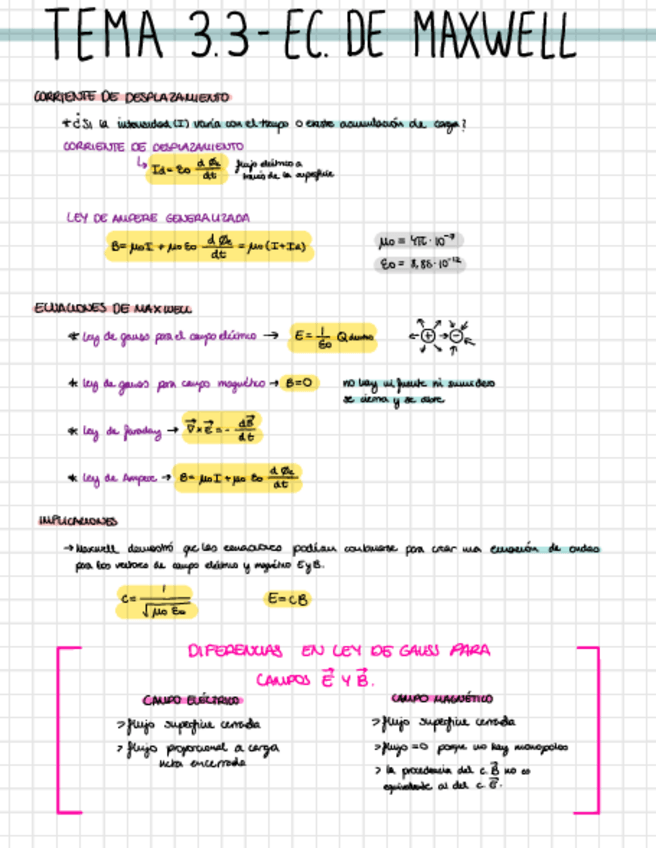 TEMA 3.3- EC. DE MAXWELL
CORRIENTE DE DESPLAZAMIENTO
* ¿Si la intensidad (I) varía con el tiempo o existe acumulación de carga?
CORRIENTE DE DESPLAZAMIENTO
↳ Id = ε0 d Øe / dt flujo eléctrico a
través de la superficie
LEY DE AMPERE GENERALIZADA
B = μ0 I + μ0 ε0 d Øe / dt = μ0 (I + Id)
μ0 = 4π · 10⁻⁷
ε0 = 8,85 · 10⁻¹²
ECUACIONES DE MAXWELL
* Ley de gauss para el campo eléctrico → E = 1/ε0 Q dentro
* Ley de gauss para campo magnético → B = 0 no hay ni fuente ni sumidero
se cierra y se abre
* Ley de faraday → ∇⃗ × E⃗ = - dB⃗/dt
* Ley de Ampere → B = μ0 I + μ0 ε0 d Øe / dt
IMPLICACIONES
→ Maxwell demostró que las ecuaciones podían combinarse para crear una ecuación de ondas
para los vectores de campo eléctrico y magnético E y B.
c = 1 / √μ0 ε0
E = cB
DIFERENCIAS EN LEY DE GAUSS PARA
CAMPOS E⃗ Y B⃗.
CAMPO ELÉCTRICO
> flujo superficie cerrada
> flujo proporcional a carga
neta encerrada
CAMPO MAGNÉTICO
> flujo superficie cerrada
> flujo = 0 porque no hay monopolos
> la procedencia del c. B⃗ no es
equivalente al del c. E⃗.